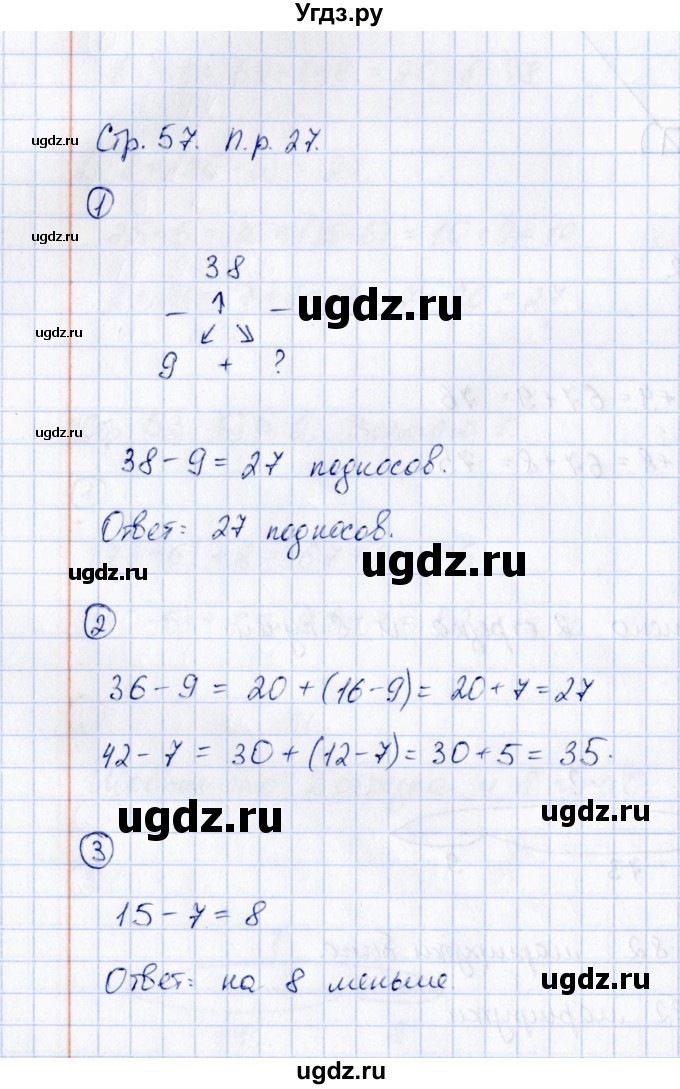 Угдз.ру
ugdz.ru
Стр. 57. П.р. 27.
1
ugdz.ru
38
ugdz.ru
– ↑ –
ugdz.ru
↙ ↘
9 + ?
ugdz.ru
38 - 9 = 27 подносов.
Ответ: 27 подносов.
ugdz.ru
ugdz.ru
2
36 - 9 = 20 + (16 - 9) = 20 + 7 = 27
42 - 7 = 30 + (12 - 7) = 30 + 5 = 35.
ugdz.ru
ugdz.ru
3
15 - 7 = 8
Ответ: на 8 меньше.
ugdz.ru
ugdz.ru